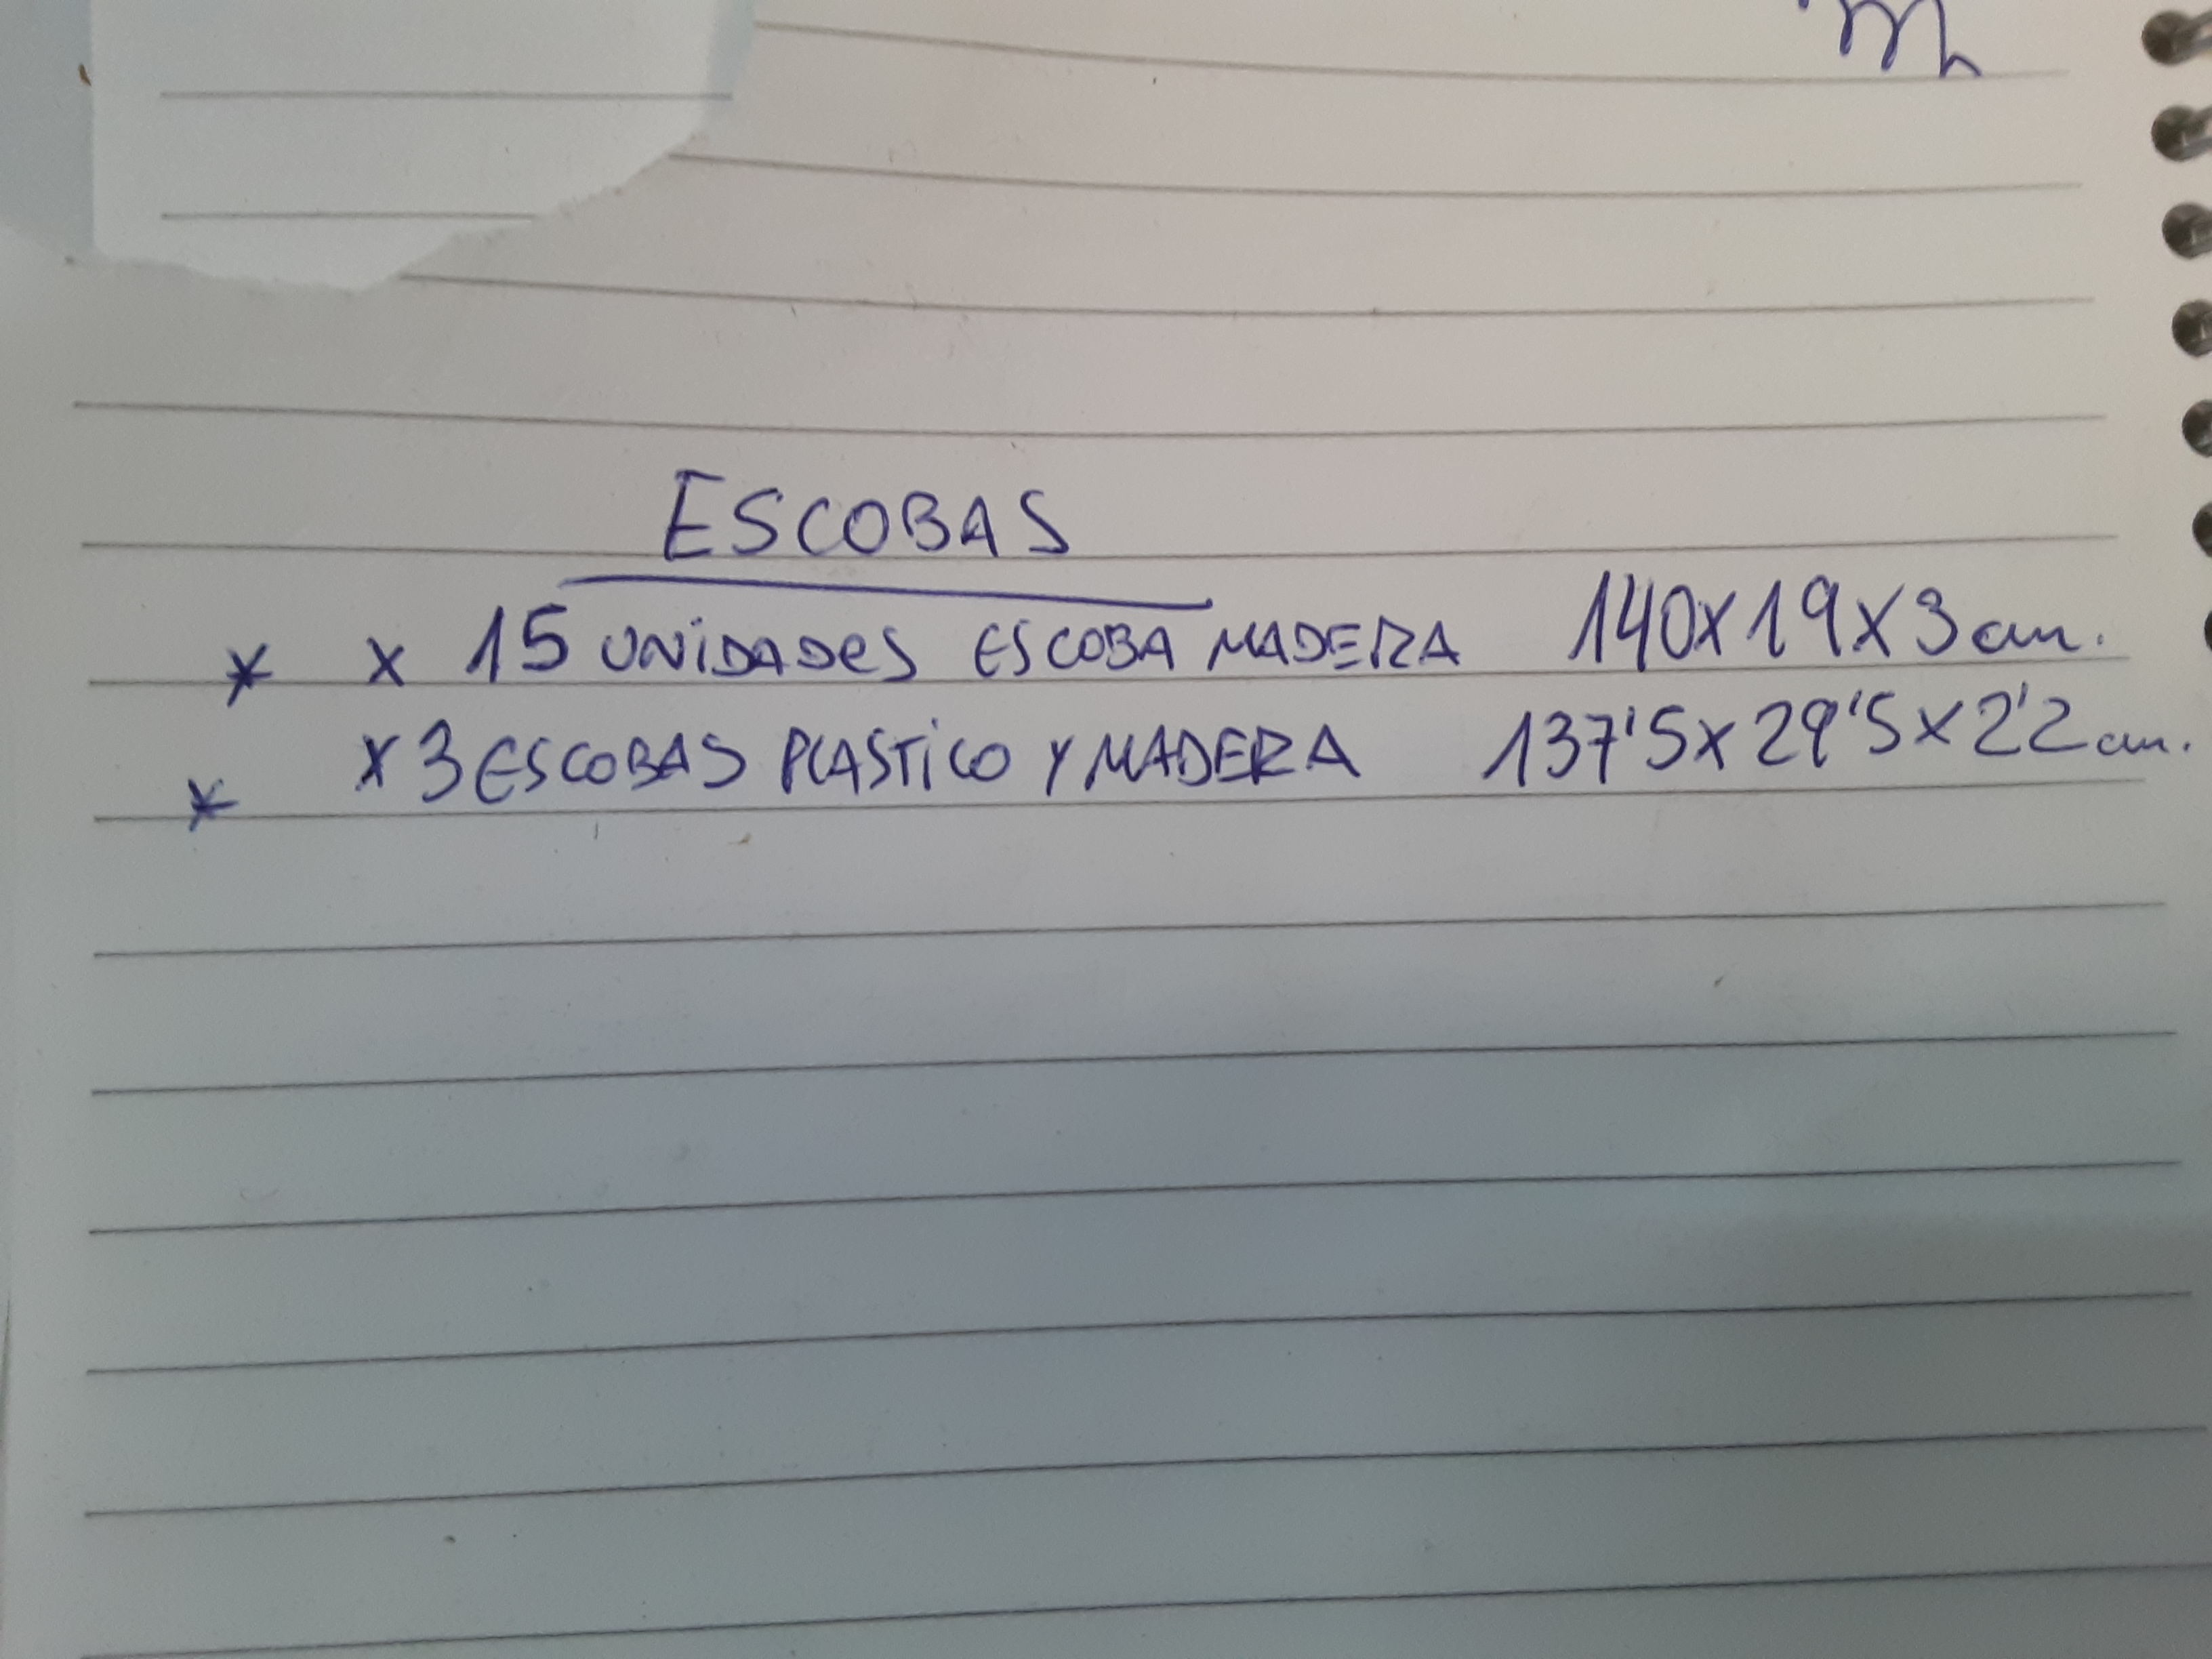 ESCOBAS
* x 15 UNIDADES ESCOBA MADERA 140x19x3 cm.
* x 3 ESCOBAS PLASTICO Y MADERA 137'5x29'5x2'2 cm.